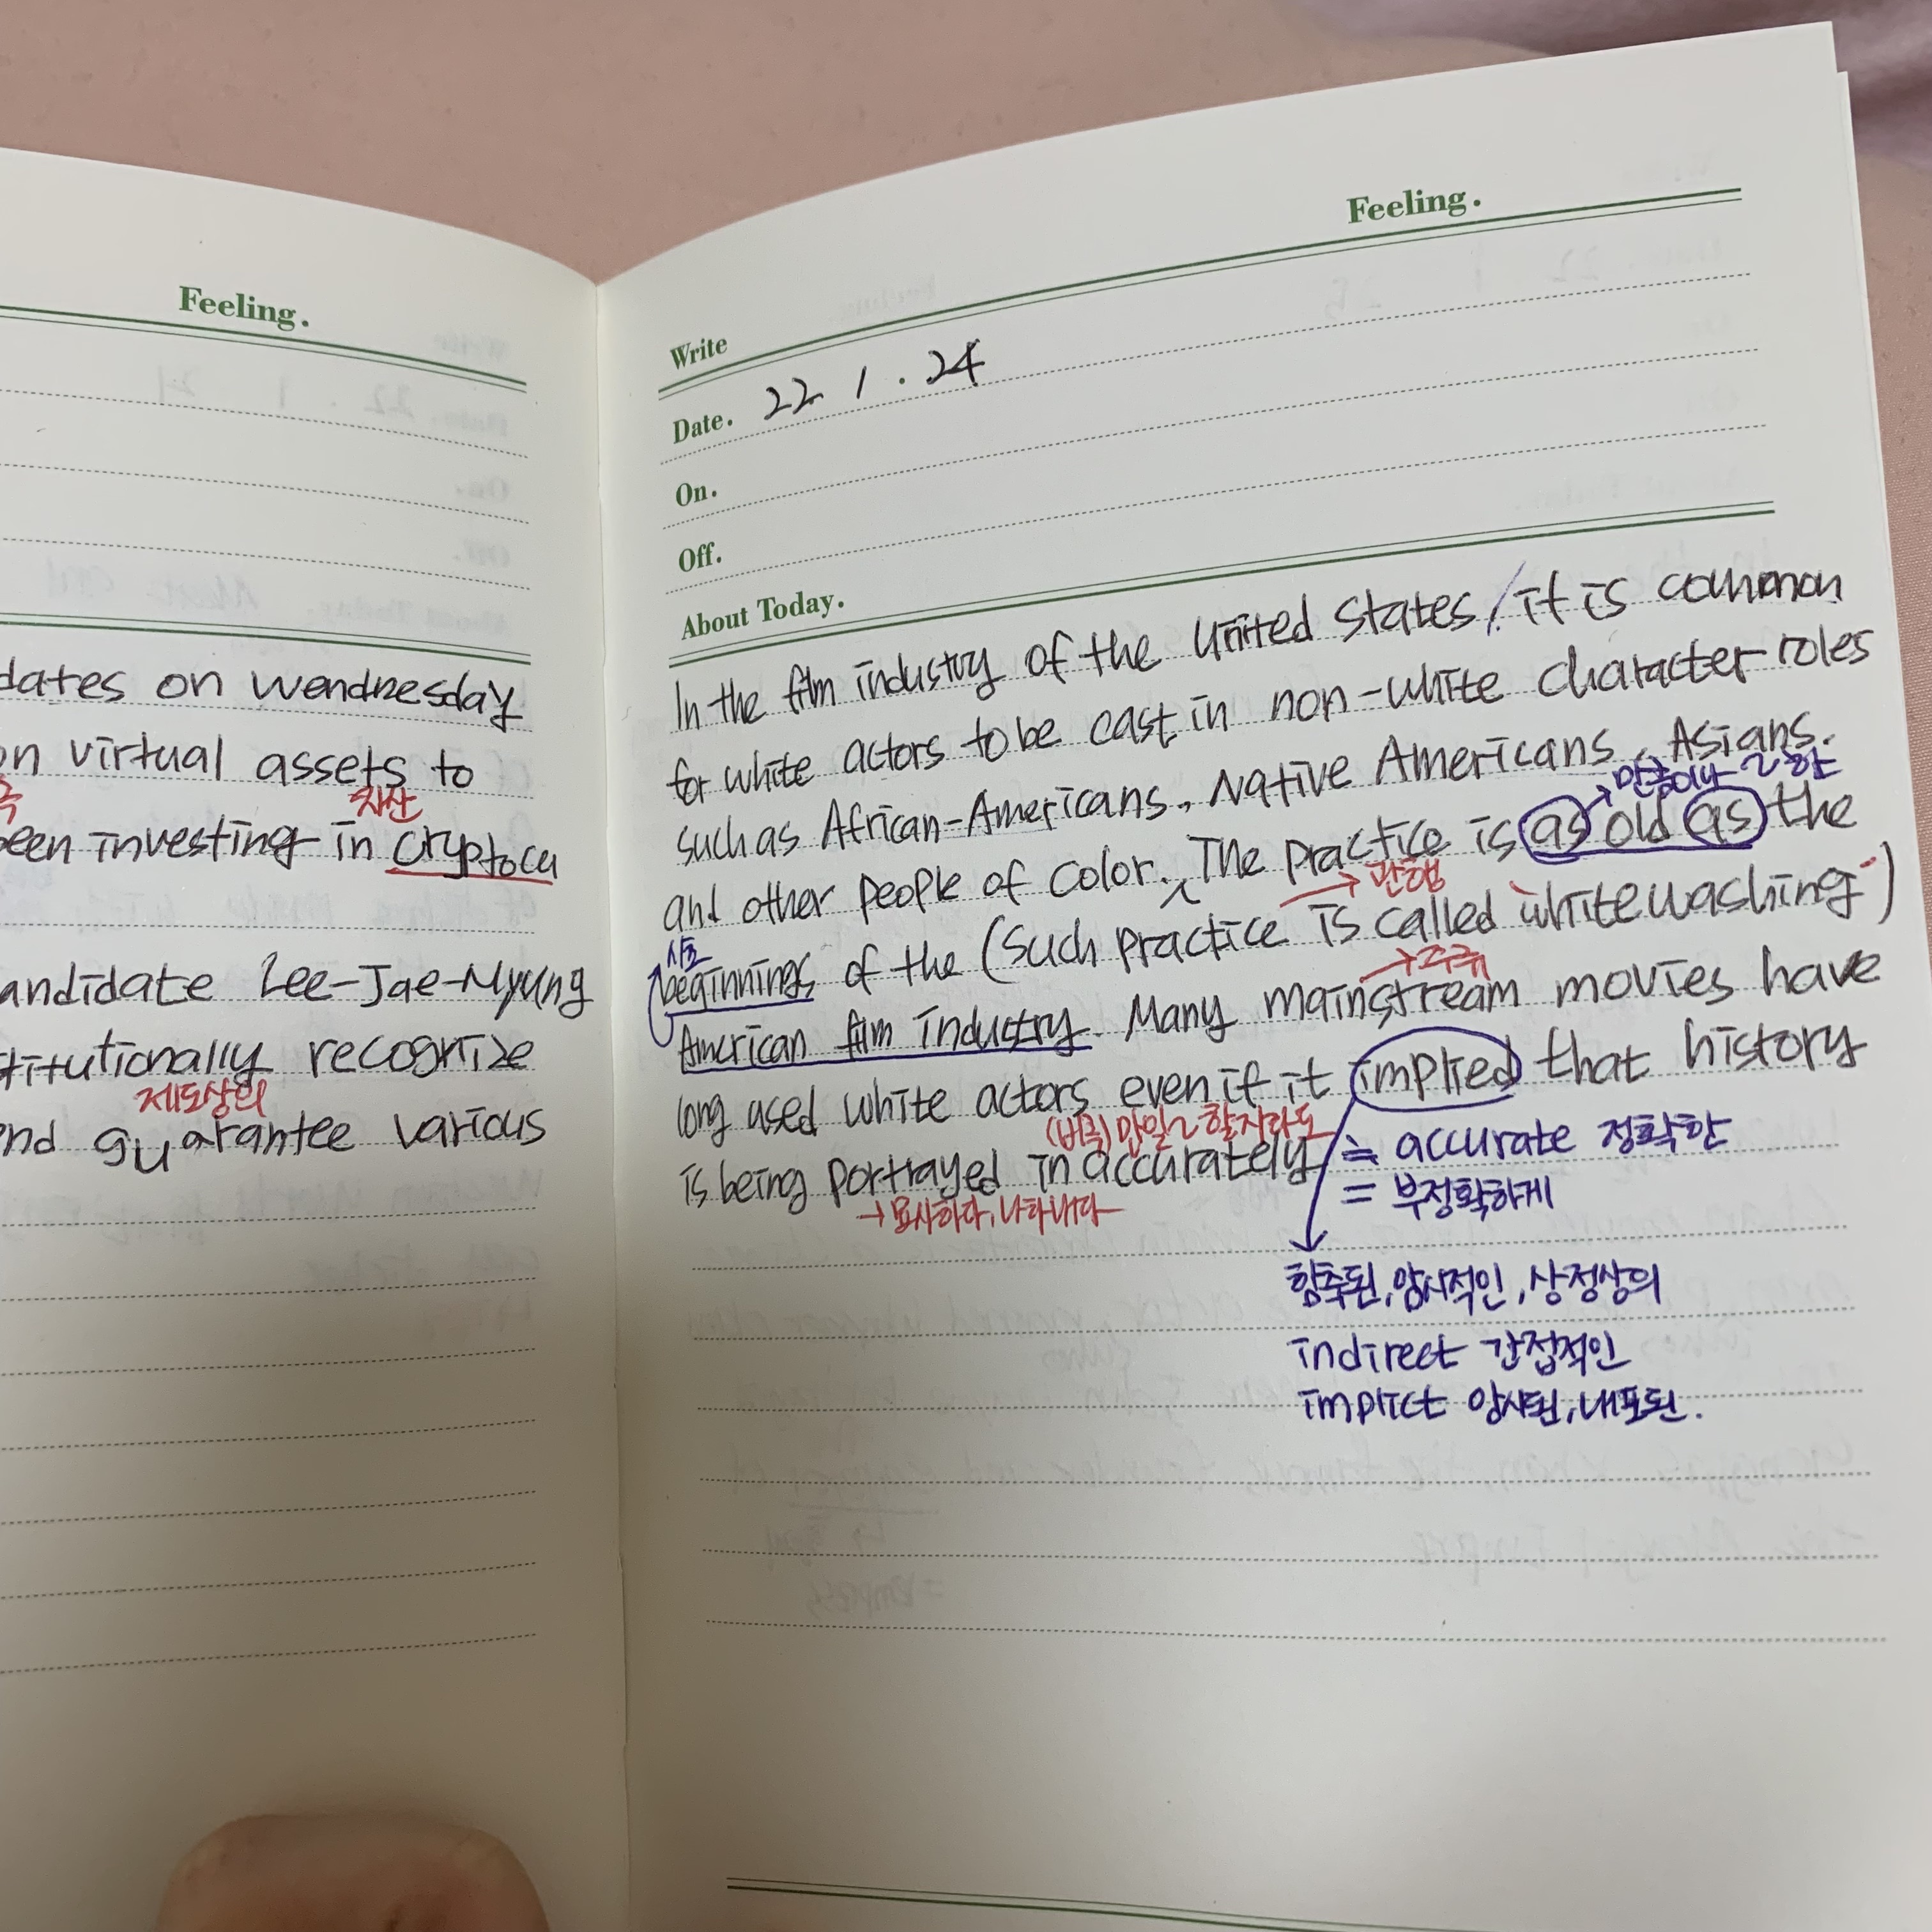 Feeling.
dates on wendnesday
on virtual assets to
자산
een investing in cryptocu
andidate Lee-Jae-Myung
titutionally recognize
제도상의
nd guarantee various
Feeling.
Write
Date. 22 . 1 . 24
On.
Off.
About Today.
In the film industry of the United States, it is common
for white actors to be cast in non-white character roles
such as African-Americans, Native Americans, Asians.
만큼이나 ~한
and other people of color. The practice is as old as the
관행
시초
beginnings of the (Such practice is called 'whitewashing')
주류
American film industry. Many mainstream movies have
long used white actors even if it implied that history
(비록) 만일 ~ 할지라도
is being portrayed inaccurately ≒ accurate 정확한
= 부정확하게
→ 묘사하다, 나타내다
함축된, 암시적인, 상정상의
indirect 간접적인
implict 암시된, 내포된.